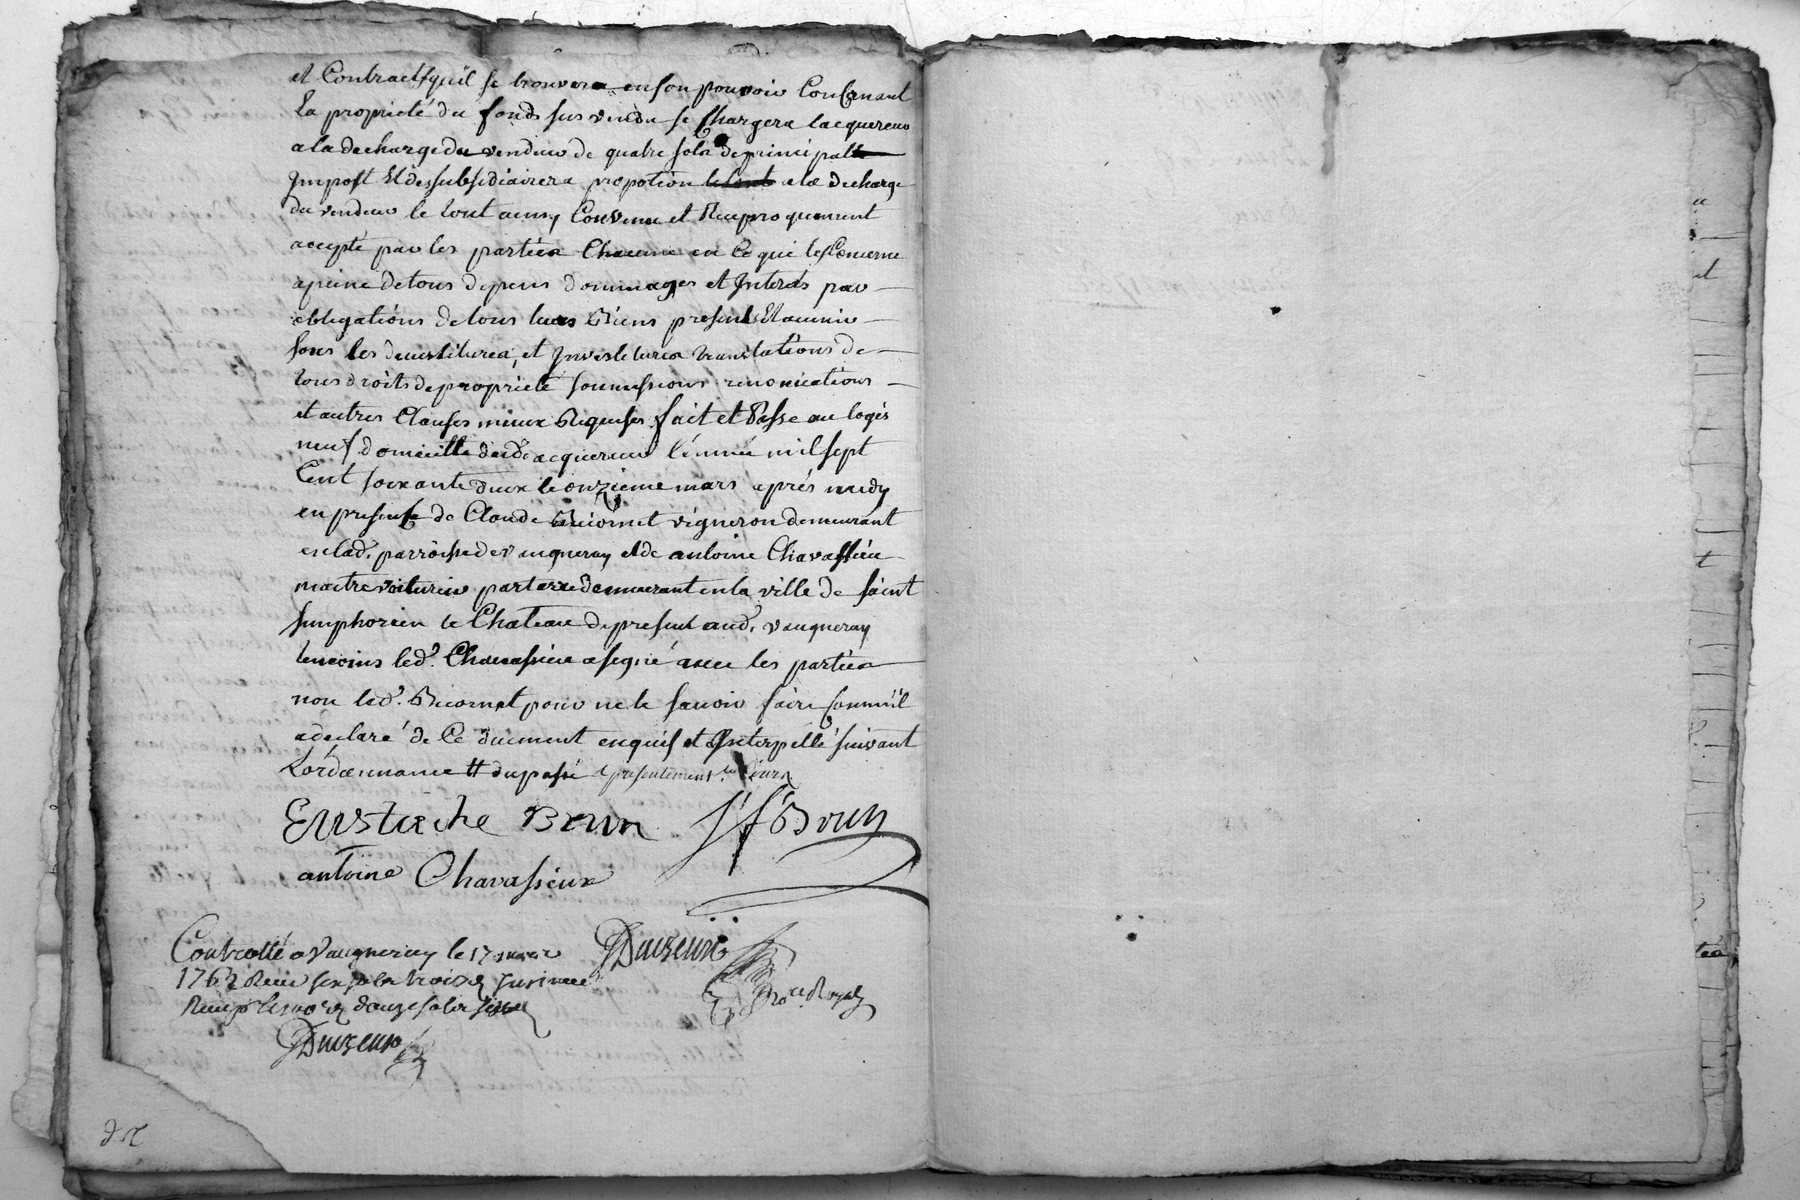 et Contracts quil se trouvera en son pouvoir Concernant
La proprieté du fonds sus vendu se Chargera lacquereur
a la decharge du vendeur de quatre sols de principal
Impost Et des subsidiaires a propotion le tout a la decharge
du vendeur le tout ainsy Convenu et Reciproquement
accepté par les parties Chacune en Ce qui les Concerne
a peine de tous depens dommages et Interets par
obligations de tous leurs Biens presents Et avenir
sous les devestitures, et Investitures translations de
tous droits de proprieté soumissions renonciations
et autres Clauses mieux Requises fait et Passé au logis
neuf domicille dud. acquereur l'année mil sept
Cent soixante deux le onzieme mars aprés midy
en presence de Claude Bicornet vigneron demeurant
en lad. parroisse de vaugneray et de antoine Chavassieu
maitre voiturier par terre demeurant en la ville de saint
simphorien le Chateau de present aud. vaugneray
temoins led. Chavassieu a signé avec les parties
non led. Bicornet pour ne le savoir faire Comm'il
a declaré de Ce duement enquis et Interpellé suivant
Lordonnance # du passé
Eustache Brun J f Brun
antoine Chavassieux
Controllé a Vaugneray le 17 mars
1762 Recu six sols
Duizeux
Nore Royal
Duizeux